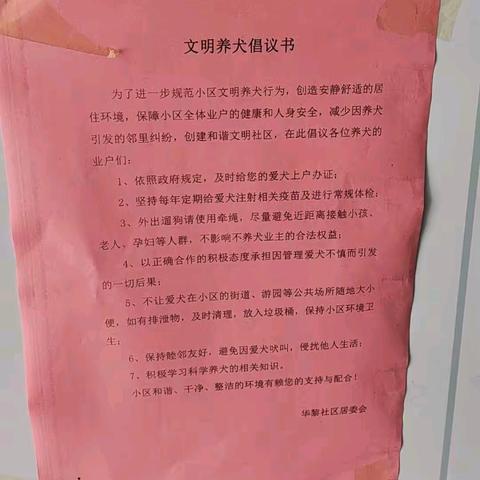 文明养犬倡议书
为了进一步规范小区文明养犬行为，创造安静舒适的居
住环境，保障小区全体业户的健康和人身安全，减少因养犬
引发的邻里纠纷，创建和谐文明社区，在此倡议各位养犬的
业户们：
1、依照政府规定，及时给您的爱犬上户办证；
2、坚持每年定期给爱犬注射相关疫苗及进行常规体检；
3、外出遛狗请使用牵绳，尽量避免近距离接触小孩、
老人、孕妇等人群，不影响不养犬业主的合法权益；
4、以正确合作的积极态度承担因管理爱犬不慎而引发
的一切后果；
5、不让爱犬在小区的街道、游园等公共场所随地大小
便，如有排泄物，及时清理，放入垃圾桶，保持小区环境卫
生；
6、保持睦邻友好，避免因爱犬吠叫，侵扰他人生活；
7、积极学习科学养犬的相关知识。
小区和谐、干净、整洁的环境有赖您的支持与配合！
华黎社区居委会